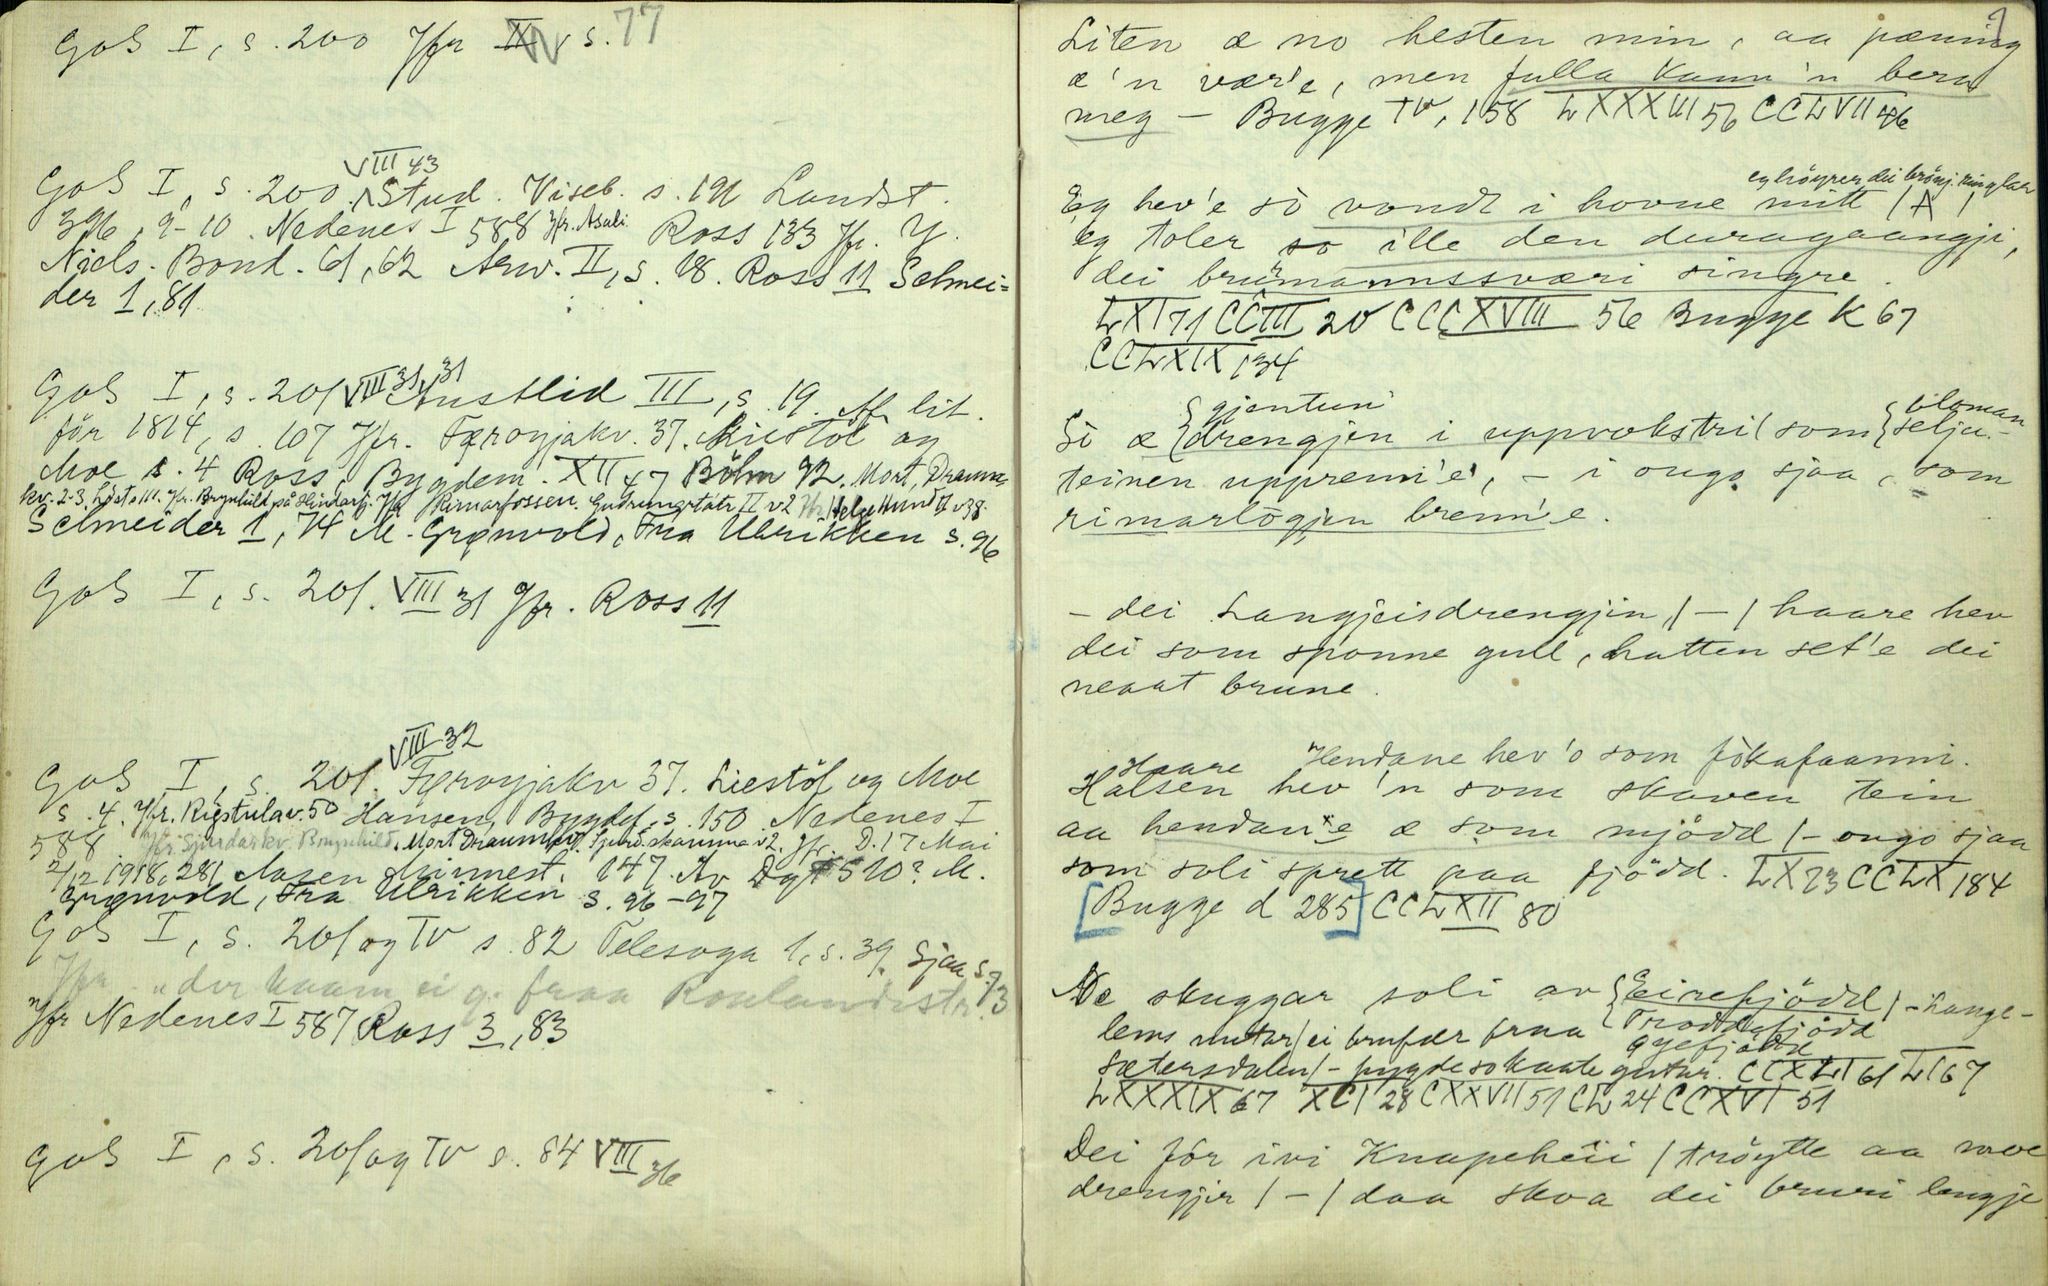 GoS I, s. 200 Jfr IV s. 77
VIII 43
GoS I, s. 200. Stud. Viseb. s. 191 Landst.
396, 9-10. Nedenes I 588 Jfr. Asali Ross 133 Jfr. Y.
Niels. Bond. 61, 62 Arw. II, s. 18. Ross 11 Schnei=
der 1, 81
GoS I, s. 201 VIII 31 Austlid III, s. 19. Af lit.
för 1814, s. 107 Jfr. Færoyjakv. 37. Liestöl og
Moe s. 4 Ross, Bygdem. XII 47 Böhm 92. Mort, Draum
kv. 2-3. Jfr. Brynhild på Hindarfj. Jfr Rimarfossen. II v2 Helge Hund II v38.
Schneider 1, 74 M. Grønvold, Fra Ulrikken s. 96
GoS I, s. 201. VIII 31 Jfr. Ross 11
VIII 32
GoS I, s. 201. Færoyjakv 37. Liestöl og Moe
s. 4. Jfr. Rigstula v. 50 Hansen, Bygdef. s. 150. Nedenes I
588 Jfr Sjurdarkv. Brynhild. Mort Draumkv. Sjurd. skamma v2. Jfr. D. 17 Mai
2/12 1918, 281 Aasen Minnest. 147. Av Dgf 510? M.
Grønvold, Fra Ulrikken s. 96-97
GoS I, s. 201 og IV s. 82 Telesoga 1, s. 39. Sjaa s. 73
Jfr. "der kaam ei g. fraa Roulandsstr.
Jfr Nedenes I 587 Ross 3, 83
GoS I, s. 201 og IV s. 84 VIII 36
Liten æ no hesten min, aa pænning
æ'n vær'e, men fulla kann'n bera
meg – Bugge IV, 158 LXXXIII 56 CCLVII 46
eg höyrer dei brönj. ringlar
Eg hev'e sò vondt i hovue mitt / /
eg toler so ille den duragaangji,
dei brurmannssværi singre.
LXI 71 CCIII 20 CCCXVIII 56 Bugge K 67
CCLXIX 134
gjentun bloman
Sò æ drengjen i uppvokstri / som selju-
teinen upprenn'e, – i ougo sjaa, som
rimarlògjen brenn'e.
– dei Langjeisdrengjin, / – / haare hev
dei som sponne gull, hatten set'e dei
neaat brune.
Haare Hendane hev'o som fòkafaanni.
Halsen hev'n som skaven tein
aa hendan'e æ som mjödd / – ougo sjaa
som soli sprett paa fjödd. LX 23 CCLX 184
[Bugge d 285] CCLXII 80
No skuggar soli av Eirefjödd / – Lange-
lems nutar / ei brufær fraa Troddefjödd
sætersdalen / – bygde so kaate gutar. CCXLI 61 LI 67
LXXXIX 67 XCI 28 CXXVII 51 CL 24 CCXVI 51
Dei fór ivi Knapeheii / tröytte aa moe
drengjir / – / daa skoa dei bruri lengje